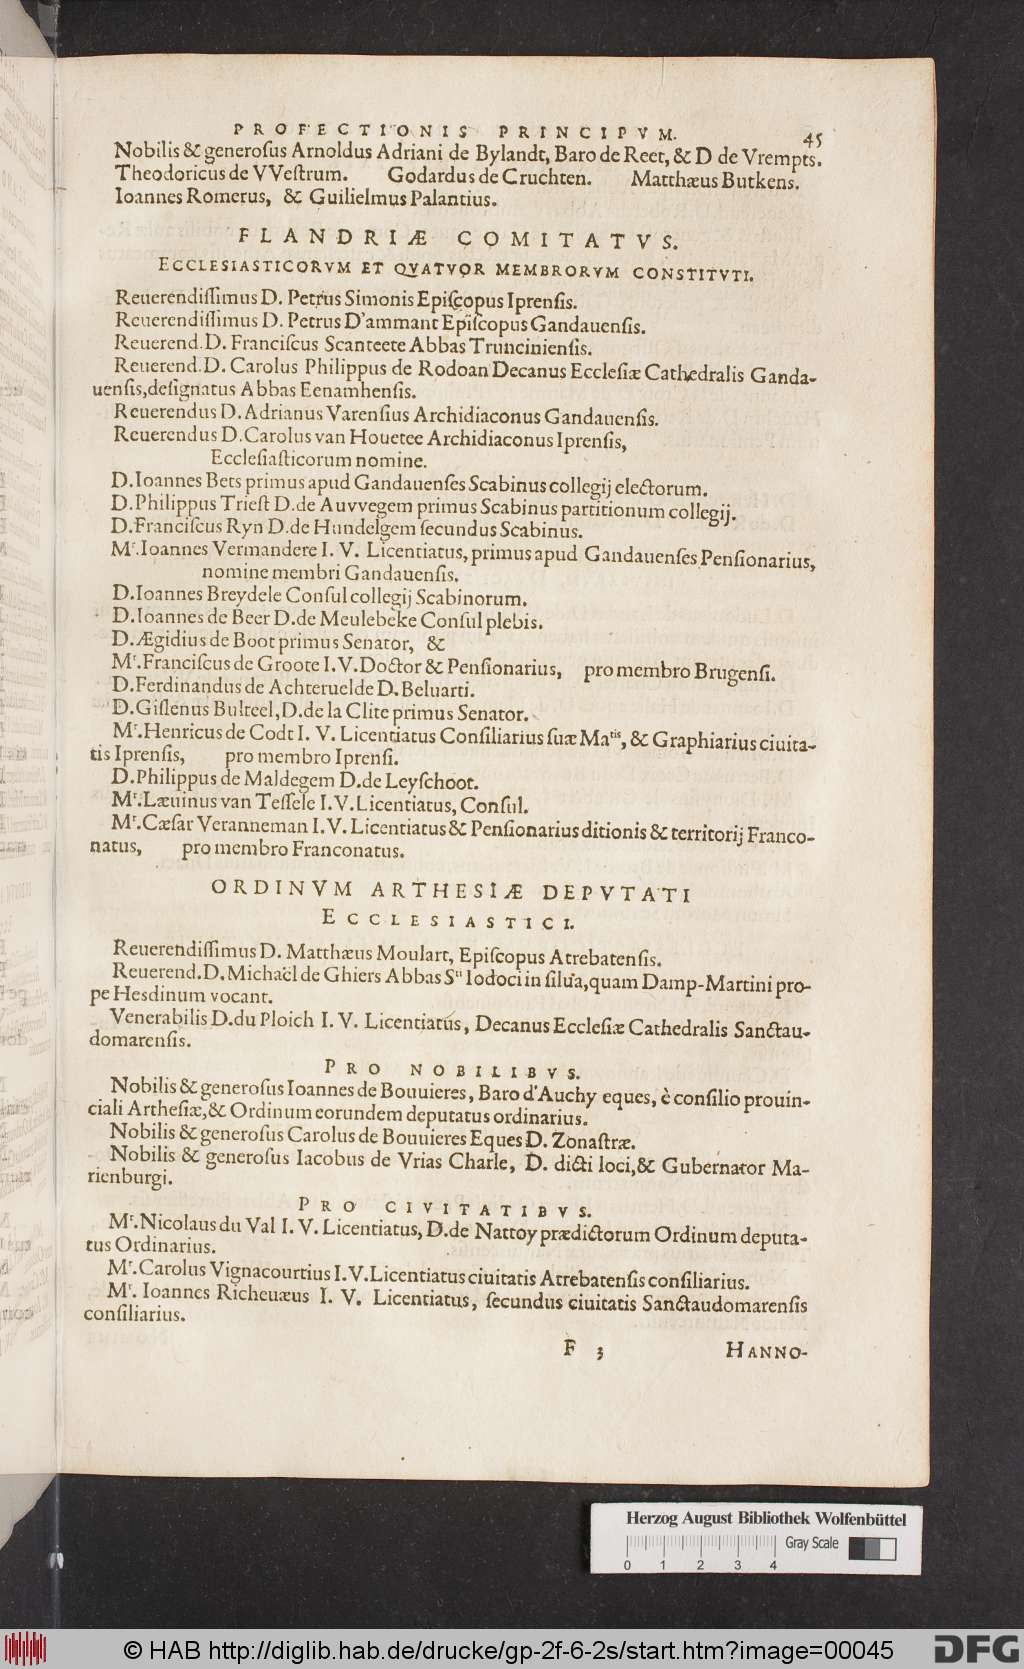 PROFECTIONIS PRINCIPVM. 45
Nobilis & generoſus Arnoldus Adriani de Bylandt, Baro de Reet, & D de Vrempts.
Theodoricus de VVeſtrum. Godardus de Cruchten. Matthæus Butkens.
Ioannes Romerus, & Guilielmus Palantius.
FLANDRIÆ COMITATVS.
ECCLESIASTICORVM ET QVATVOR MEMBRORVM CONSTITVTI.
Reuerendiſſimus D. Petrus Simonis Epiſcopus Iprenſis.
Reuerendiſſimus D. Petrus D'ammant Epiſcopus Gandauenſis.
Reuerend. D. Franciſcus Scanteete Abbas Trunciniensis.
Reuerend. D. Carolus Philippus de Rodoan Decanus Eccleſiæ Cathedralis Ganda-
uenſis, deſignatus Abbas Eenamhenſis.
Reuerendus D. Adrianus Varenſius Archidiaconus Gandauenſis.
Reuerendus D. Carolus van Houetee Archidiaconus Iprenſis,
Eccleſiaſticorum nomine.
D. Ioannes Bets primus apud Gandauenſes Scabinus collegij electorum.
D. Philippus Trieſt D. de Auvvegem primus Scabinus partitionum collegij.
D. Franciſcus Ryn D. de Hundelgem ſecundus Scabinus.
Mr. Ioannes Vermandere I. V. Licentiatus, primus apud Gandauenſes Penſionarius,
nomine membri Gandauenſis.
D. Ioannes Breydele Conſul collegij Scabinorum.
D. Ioannes de Beer D. de Meulebeke Conſul plebis.
D. Ægidius de Boot primus Senator, &
Mr. Franciſcus de Groote I. V. Doctor & Penſionarius, pro membro Brugenſi.
D. Ferdinandus de Achteruelde D. Beluarti.
D. Giſlenus Bulteel, D. de la Clite primus Senator.
Mr. Henricus de Codt I. V. Licentiatus Conſiliarius ſuæ Matis, & Graphiarius ciuita-
tis Iprenſis, pro membro Iprenſi.
D. Philippus de Maldegem D. de Leyſchoot.
Mr. Læuinus van Teſſele I. V. Licentiatus, Conſul.
Mr. Cæſar Veranneman I. V. Licentiatus & Penſionarius ditionis & territorij Franco-
natus, pro membro Franconatus.
ORDINVM ARTHESIÆ DEPVTATI
ECCLESIASTICI.
Reuerendiſſimus D. Matthæus Moulart, Epiſcopus Atrebatenſis.
Reuerend. D. Michaël de Ghiers Abbas Sti Iodoci in ſilua, quam Damp-Martini pro-
pe Hesdinum vocant.
Venerabilis D. du Ploich I. V. Licentiatus, Decanus Eccleſiæ Cathedralis Sanctau-
domarenſis.
PRO NOBILIBVS.
Nobilis & generoſus Ioannes de Bouuieres, Baro d'Auchy eques, è conſilio prouin-
ciali Artheſiæ, & Ordinum eorundem deputatus ordinarius.
Nobilis & generoſus Carolus de Bouuieres Eques D. Zonaſtræ.
Nobilis & generoſus Iacobus de Vrias Charle, D. dicti loci, & Gubernator Ma-
rienburgi.
PRO CIVITATIBVS.
Mr. Nicolaus du Val I. V. Licentiatus, D. de Nattoy prædictorum Ordinum deputa-
tus Ordinarius.
Mr. Carolus Vignacourtius I. V. Licentiatus ciuitatis Atrebatenſis conſiliarius.
Mr. Ioannes Richeuæus I. V. Licentiatus, ſecundus ciuitatis Sanctaudomarenſis
conſiliarius.
F 3 HANNO-
Herzog August Bibliothek Wolfenbüttel
Gray Scale
0 1 2 3 4
© HAB http://diglib.hab.de/drucke/gp-2f-6-2s/start.htm?image=00045 DFG